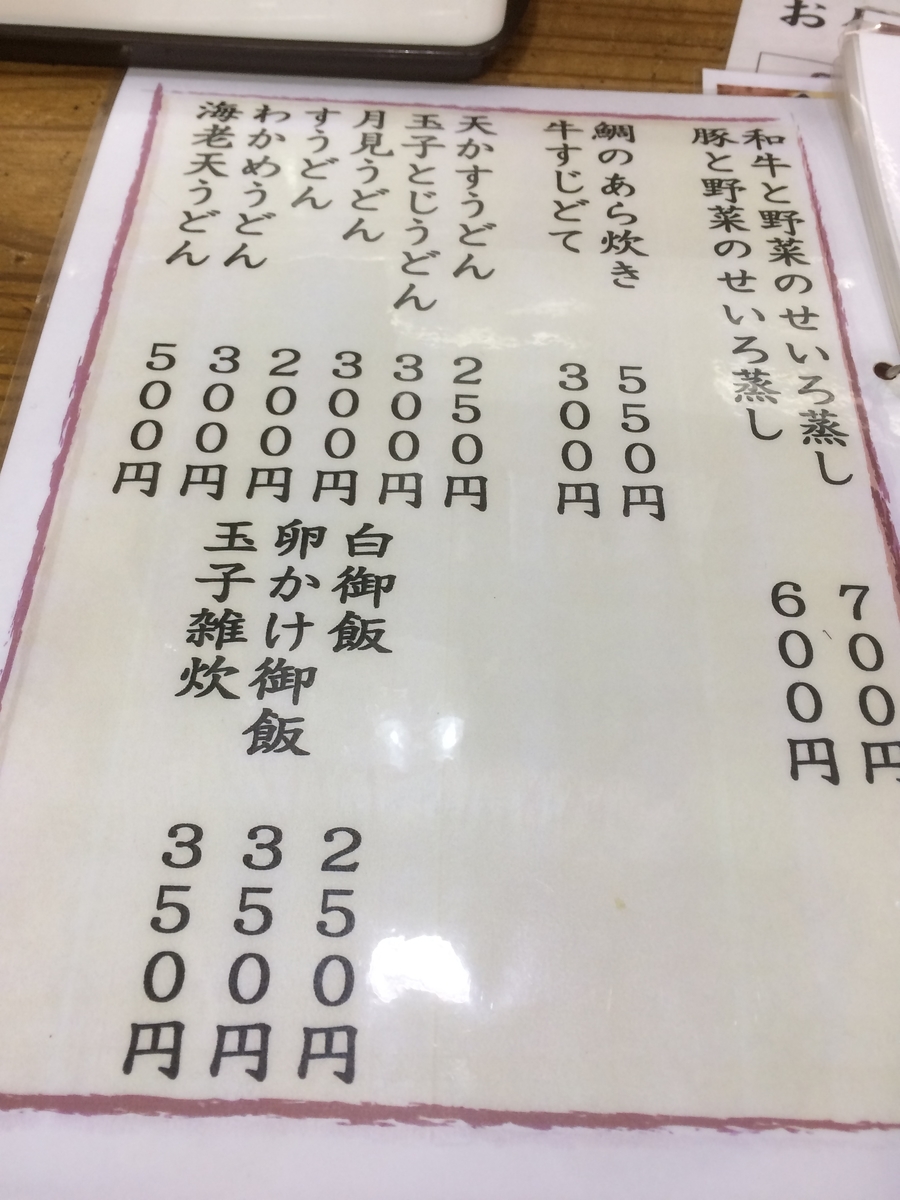 和牛と野菜のせいろ蒸し 700円
豚と野菜のせいろ蒸し 600円
鯛のあら炊き 550円
牛すじどて 300円
天かすうどん 250円
玉子とじうどん 300円
月見うどん 300円
すうどん 200円
わかめうどん 300円
海老天うどん 500円
白御飯 250円
卵かけ御飯 350円
玉子雑炊 350円
お